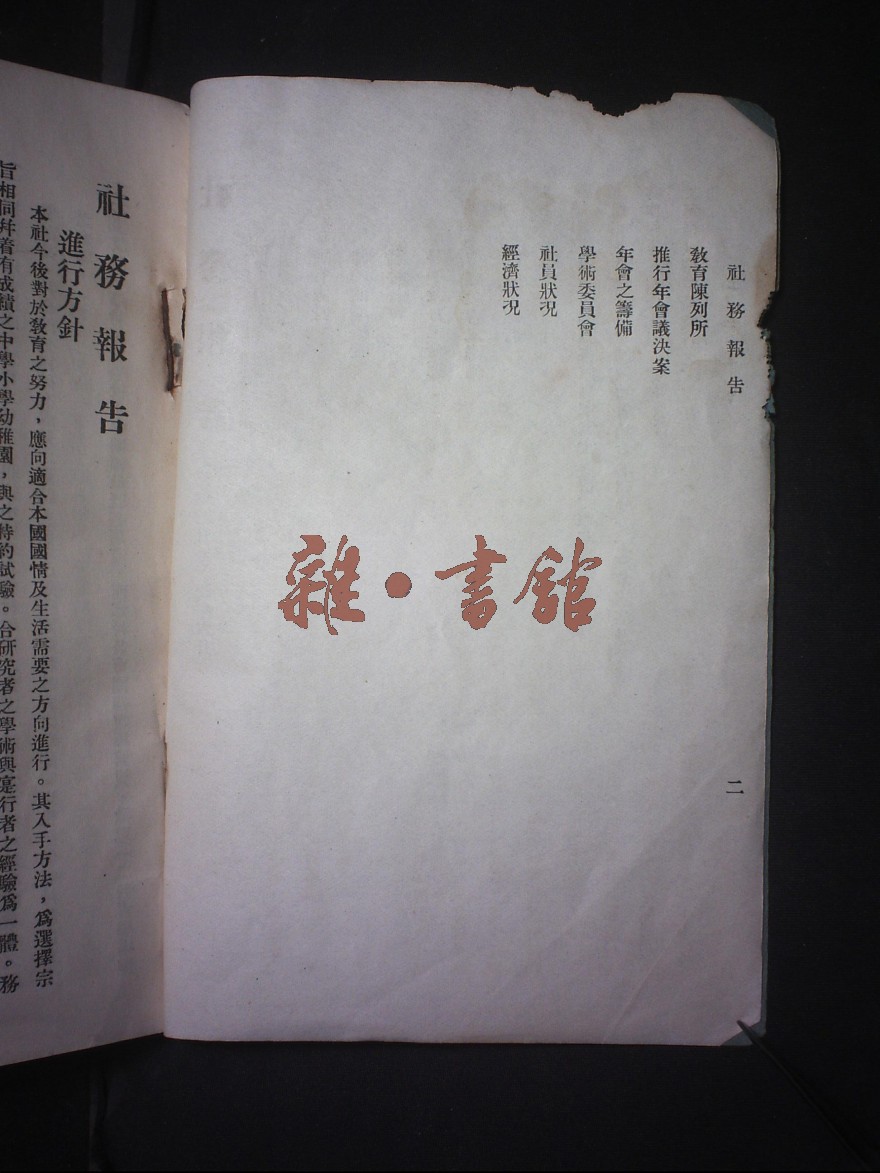 社務報告
教育陳列所
推行年會議決案
年會之籌備
學術委員會
社員狀况
經濟狀况
二
社務報告
進行方針
本社今後對於教育之努力，應向適合本國國情及生活需要之方向進行。其入手方法，爲選擇宗
旨相同幷着有成績之中學小學幼稚園，與之特約試驗。合研究者之學術與寔行者之經驗爲一體。務
雜·書館